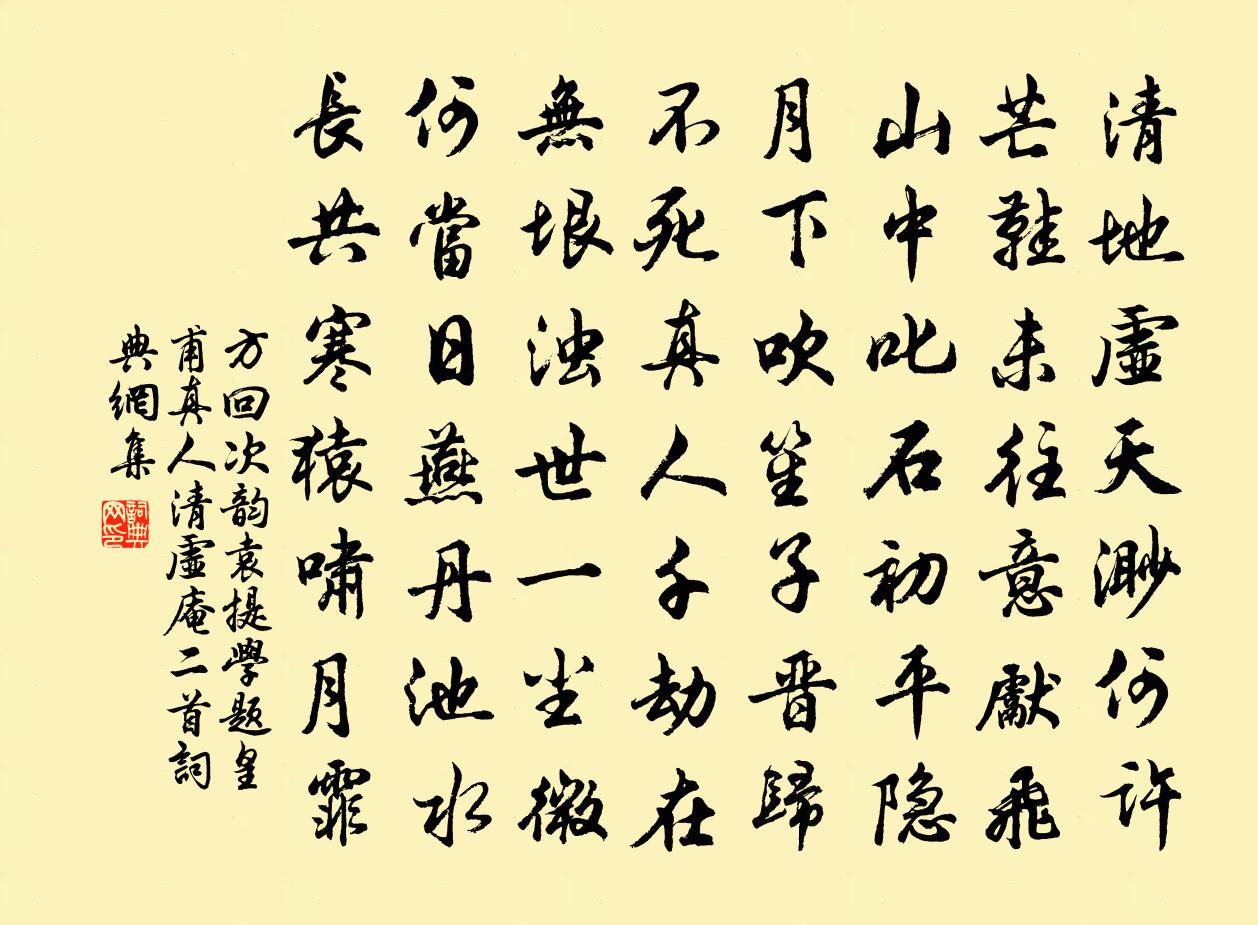 清地虛天渺何許
芒鞋未往意獻飛
山中叱石初平隐
月下吹笙子晋歸
不死真人千劫在
無垠浊世一尘微
何當日燕丹池水
長共寒猿嘯月霏
方回次韵袁提學題皇
甫真人清虛庵二首詞
典網集
詞典網印